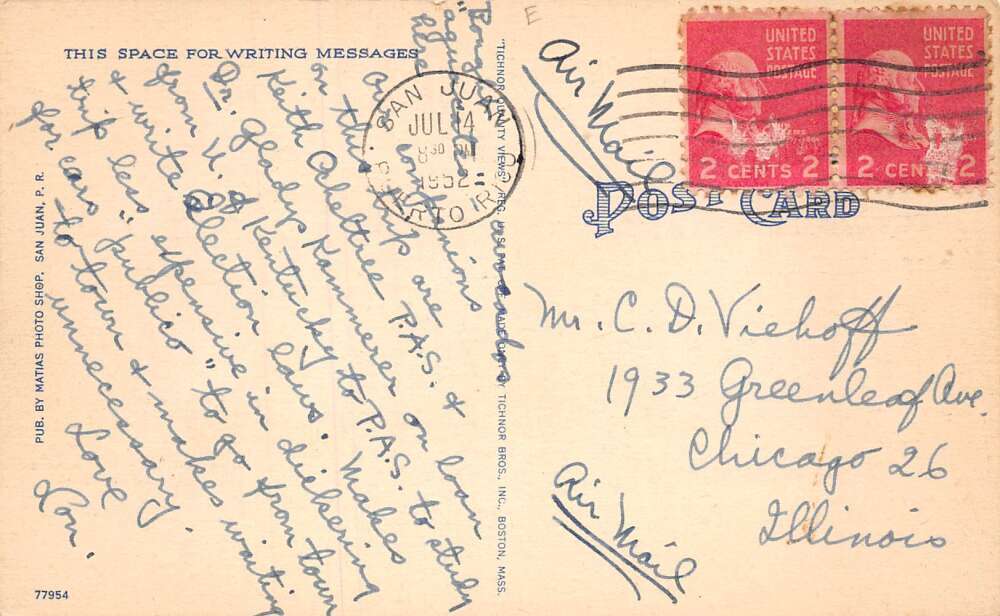 THIS SPACE FOR WRITING MESSAGES
companions
on this trip are
Keith P.A.S. &
Dr. Gladys Kammerer on loan
from U. of Kentucky to P.A.S. to study
& write election laws. Makes
trip less expensive in dickering
for cars "publico" to go from town
to town & makes waiting
unnecessary.
Love
Lou.
PUB. BY MATIAS PHOTO SHOP, SAN JUAN, P. R.
77954
"TICHNOR QUALITY VIEWS" REG. U. S. PAT. MADE ONLY BY TICHNOR BROS., INC., BOSTON, MASS.
E
SAN JUAN
JUL 14
8 30 PM
1952
PUERTO RICO
UNITED STATES POSTAGE
2 CENTS 2
UNITED STATES POSTAGE
2 CENTS 2
Air Mail
POST CARD
Mr. C. D. Viehoff
1933 Greenleaf Ave.
Chicago 26
Illinois
Air Mail